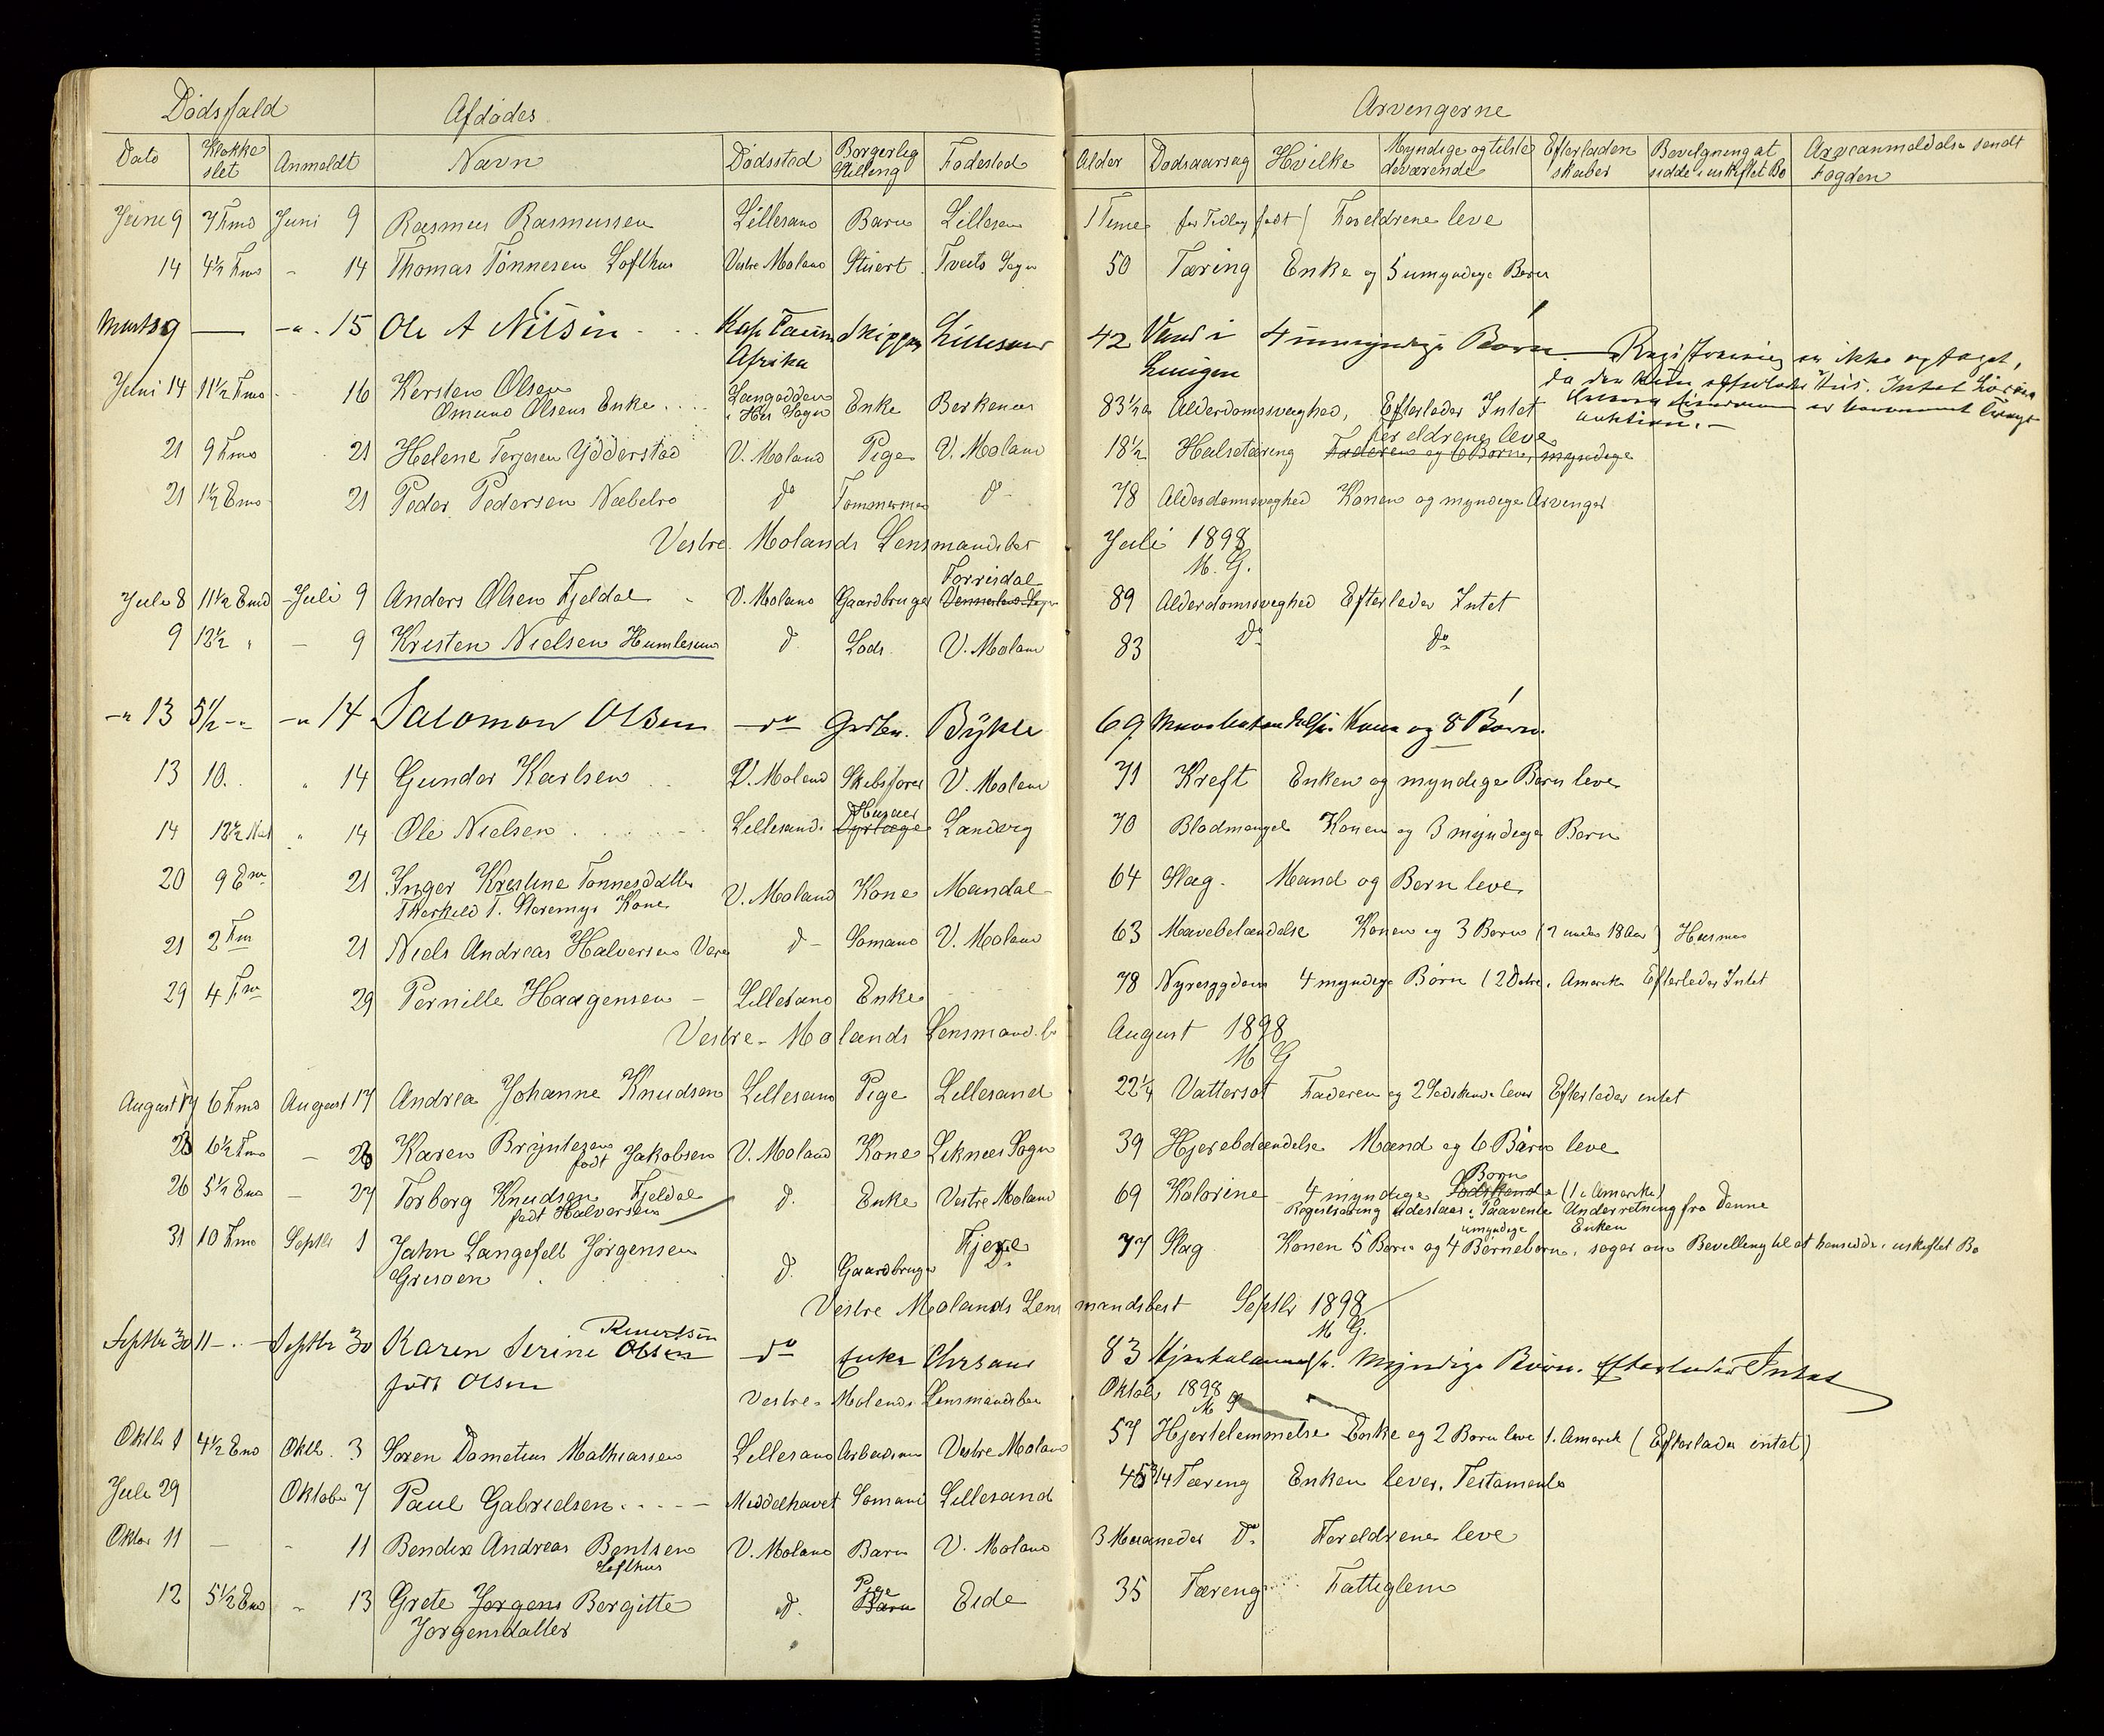 Dödsfald Afdödes Arvengerne
Dato Klokke slet Anmeldt Navn Dödssted Borgerlig Stilling Födested Alder Dödsaarsag Hvilke Myndige og tilste deværende Efterladen skaber Bevilgning at sidde i uskiftet Bo Arveanmeldelse sendt Fogden
Juni 9 7 Fmd Juni 9 Rasmus Rasmussen Lillesand Barn Lillesan 1 Time for Tidlig født Foreldrene leve
14 4½ Fmd - 14 Thomas Tönnesen Lofthus Vestre Moland Stuert Tveits Sogn 50 Tæring Enke og 5 umyndige Børn
Marts 9 — -"- 15 Ole A Nilsen Kap Afrika Skipper Lillesand 42 Vand i Lungen 4 umyndige Børn. Registrering er ikke optaget,
da den kun efterlod Intet
auktion. -
Juni 14 11½ Fmd - 16 Kersten Olsen Omund Olsens Enke Langodden i Hus Sogn Enke Berkenes 83½ Alderdomsveghed, Efterlader Intet
21 9 Fmd 21 Helene Terjesen Ydderstad V. Moland Pige V. Moland 18½ Halsetæring Faderen og 6 Børn, myndige Foreldrene leve
21 1½ Emd 21 Peder Pedersen Næbelro do Tømmermand do 78 Alderdomsveghed Konen og myndige Arvinger
Vestre Molands Lensmandsbest Juli 1898
M. G.
Juli 8 11½ Emd Juli 9 Anders Olsen Fjeldal V. Moland Gaardbruger Vennesland Sogn Torrisdal 89 Alderdomsveghed Efterlader Intet
9 12½ " - 9 Kristen Nielsen Humlesund do Lods V. Moland 83 do do
-" 13 5½ -" -" 14 Salomon Olsen - do Grdbr. Bykle 69 Mavebetændelse Kone og 8 Børn.
13 10. " 14 Gunder Karlsen V. Moland Skibsfører V. Moland 71 Kreft Enken og myndige Børn leve
14 12½ Nat " 14 Ole Nielsen Lillesand Dyrlæge Husaer Landvig 70 Blodmangel Konen og 3 myndige Børn
20 9 Em 21 Inger Kristine Tönnesdatter Therkild T. Storemyr Kone V. Moland Kone Mandal 64 Slag. Mand og Børn leve
21 2 Fm 21 Niels Andreas Halvorsen V. do Sømand V. Moland 63 Mavebetændelse Konen og 3 Børn (2 under 18 Aar) Husmand
29 4 Fm 29 Pernille Haagensen - Lillesand Enke 78 Nyresygdom 4 myndige Børn (2 Døtre i Amerika Efterlader Intet
Vestre Molands Lensmandsb August 1898
M G
August 17 6 Fmd August 17 Andrea Johanne Knudsen Lillesand Pige Lillesand 22¼ Vattersot Faderen og 2 Sødskende lever Efterlader intet
26 6½ Fmd - 26 Karen Bryntesen født Jakobsen V. Moland Kone Liknes Sogn 39 Hjernebetændelse Mand og 6 Børn leve
26 5½ Emd - 27 Torborg Knudsen Fjeldal født Halvorsen do Enke Vestre Moland 69 Kolerine 4 myndige Sødskende Børn (1 i Amerika)
Registrering udestaar i Paavente Underretning fra Denne
31 10 Fmd Septbr 1 Jahn Langefelt Jørgensen Gresøen do Gaardbruger Fjere do 77 Slag Konen 5 Børn og 4 umyndige Børnebørn, Enken søger om Bevilling til at hensidde i uskiftet Bo
Vestre Molands Lensmandsbest Septbr 1898
M G.
Septbr 30 11 - .. - Septbr 30 Karen Serine Olsen født Olsen - do Enke Chrsand 83 Myndige Børn. Efterlader Intet
Vestre Molands Lensmandsbes Oktob 1898
M G
Oktb 1 4½ Emd Oktb. 3 Søren Dometius Mathiassen Lillesand Arbeidsmand Vestre Moland 57 Hjertelemmelse Enke og 2 Børn leve 1 i Amerik (Efterlader intet)
Juli 29 Oktober 7 Paul Gabrielsen Middelhavet Sømand Lillesand 45 3/4 Tæring Enken lever. Testamente
Oktbr 11 - - 11 Bendix Andreas Bentsen Lofthus V. Moland Barn V. Moland 3 Maaneder do Foreldrene leve
12 5½ Emd - 13 Grete Jørgens Bergitte Jorgensdatter do Barn Pige Eide 35 Tæring Fattiglem